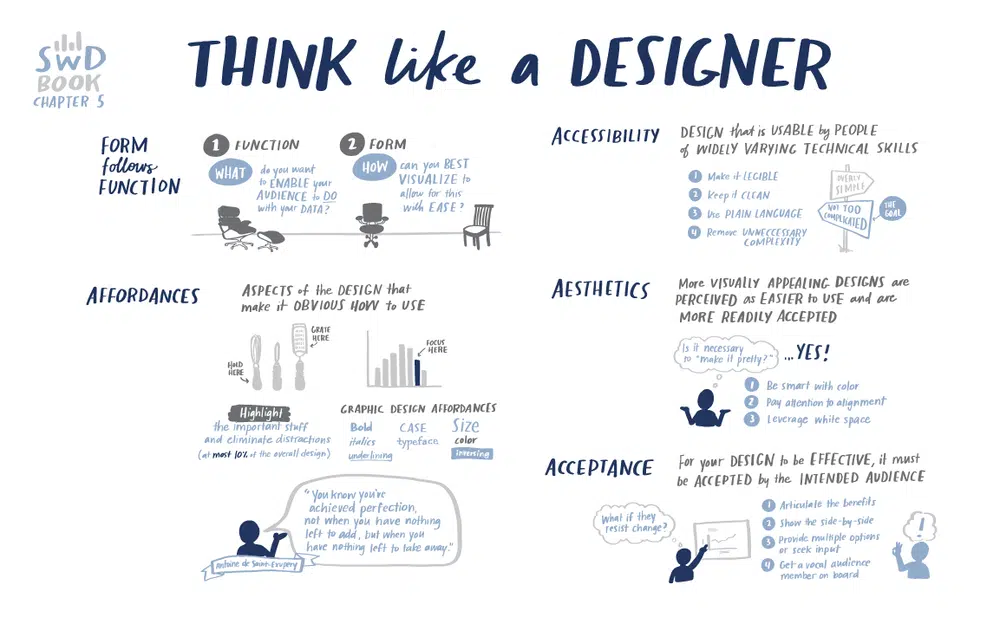 SWD
BOOK
CHAPTER 5
THINK like a DESIGNER
FORM
follows
FUNCTION
1 FUNCTION
WHAT
do you want
to ENABLE your
AUDIENCE to DO
with your DATA?
2 FORM
HOW
can you BEST
VISUALIZE to
allow for this
with EASE?
AFFORDANCES
ASPECTS of the DESIGN that
make it OBVIOUS HOW to USE
HOLD
HERE
GRATE
HERE
FOCUS
HERE
Highlight
the important stuff
and eliminate distractions
(at most 10% of the overall design)
GRAPHIC DESIGN AFFORDANCES
Bold CASE Size
italics typeface color
underlining inversing
"You know you've
achieved perfection,
not when you have nothing
left to add, but when you
have nothing left to take away."
Antoine de Saint-Exupery
ACCESSIBILITY
DESIGN that is USABLE by PEOPLE
of WIDELY VARYING TECHNICAL SKILLS
1 Make it LEGIBLE
2 Keep it CLEAN
3 Use PLAIN LANGUAGE
4 Remove UNNECESSARY
COMPLEXITY
OVERLY
SIMPLE
NOT TOO
COMPLICATED
THE
GOAL
AESTHETICS
More VISUALLY APPEALING DESIGNS are
PERCEIVED as EASIER to USE and are
MORE READILY ACCEPTED
Is it necessary
to "make it pretty?"
...YES!
1 Be smart with color
2 Pay attention to alignment
3 Leverage white space
ACCEPTANCE
For your DESIGN to be EFFECTIVE, it must
be ACCEPTED by the INTENDED AUDIENCE
What if they
resist change?
1 Articulate the benefits
2 Show the side-by-side
3 Provide multiple options
or seek input
4 Get a vocal audience
member on board
!